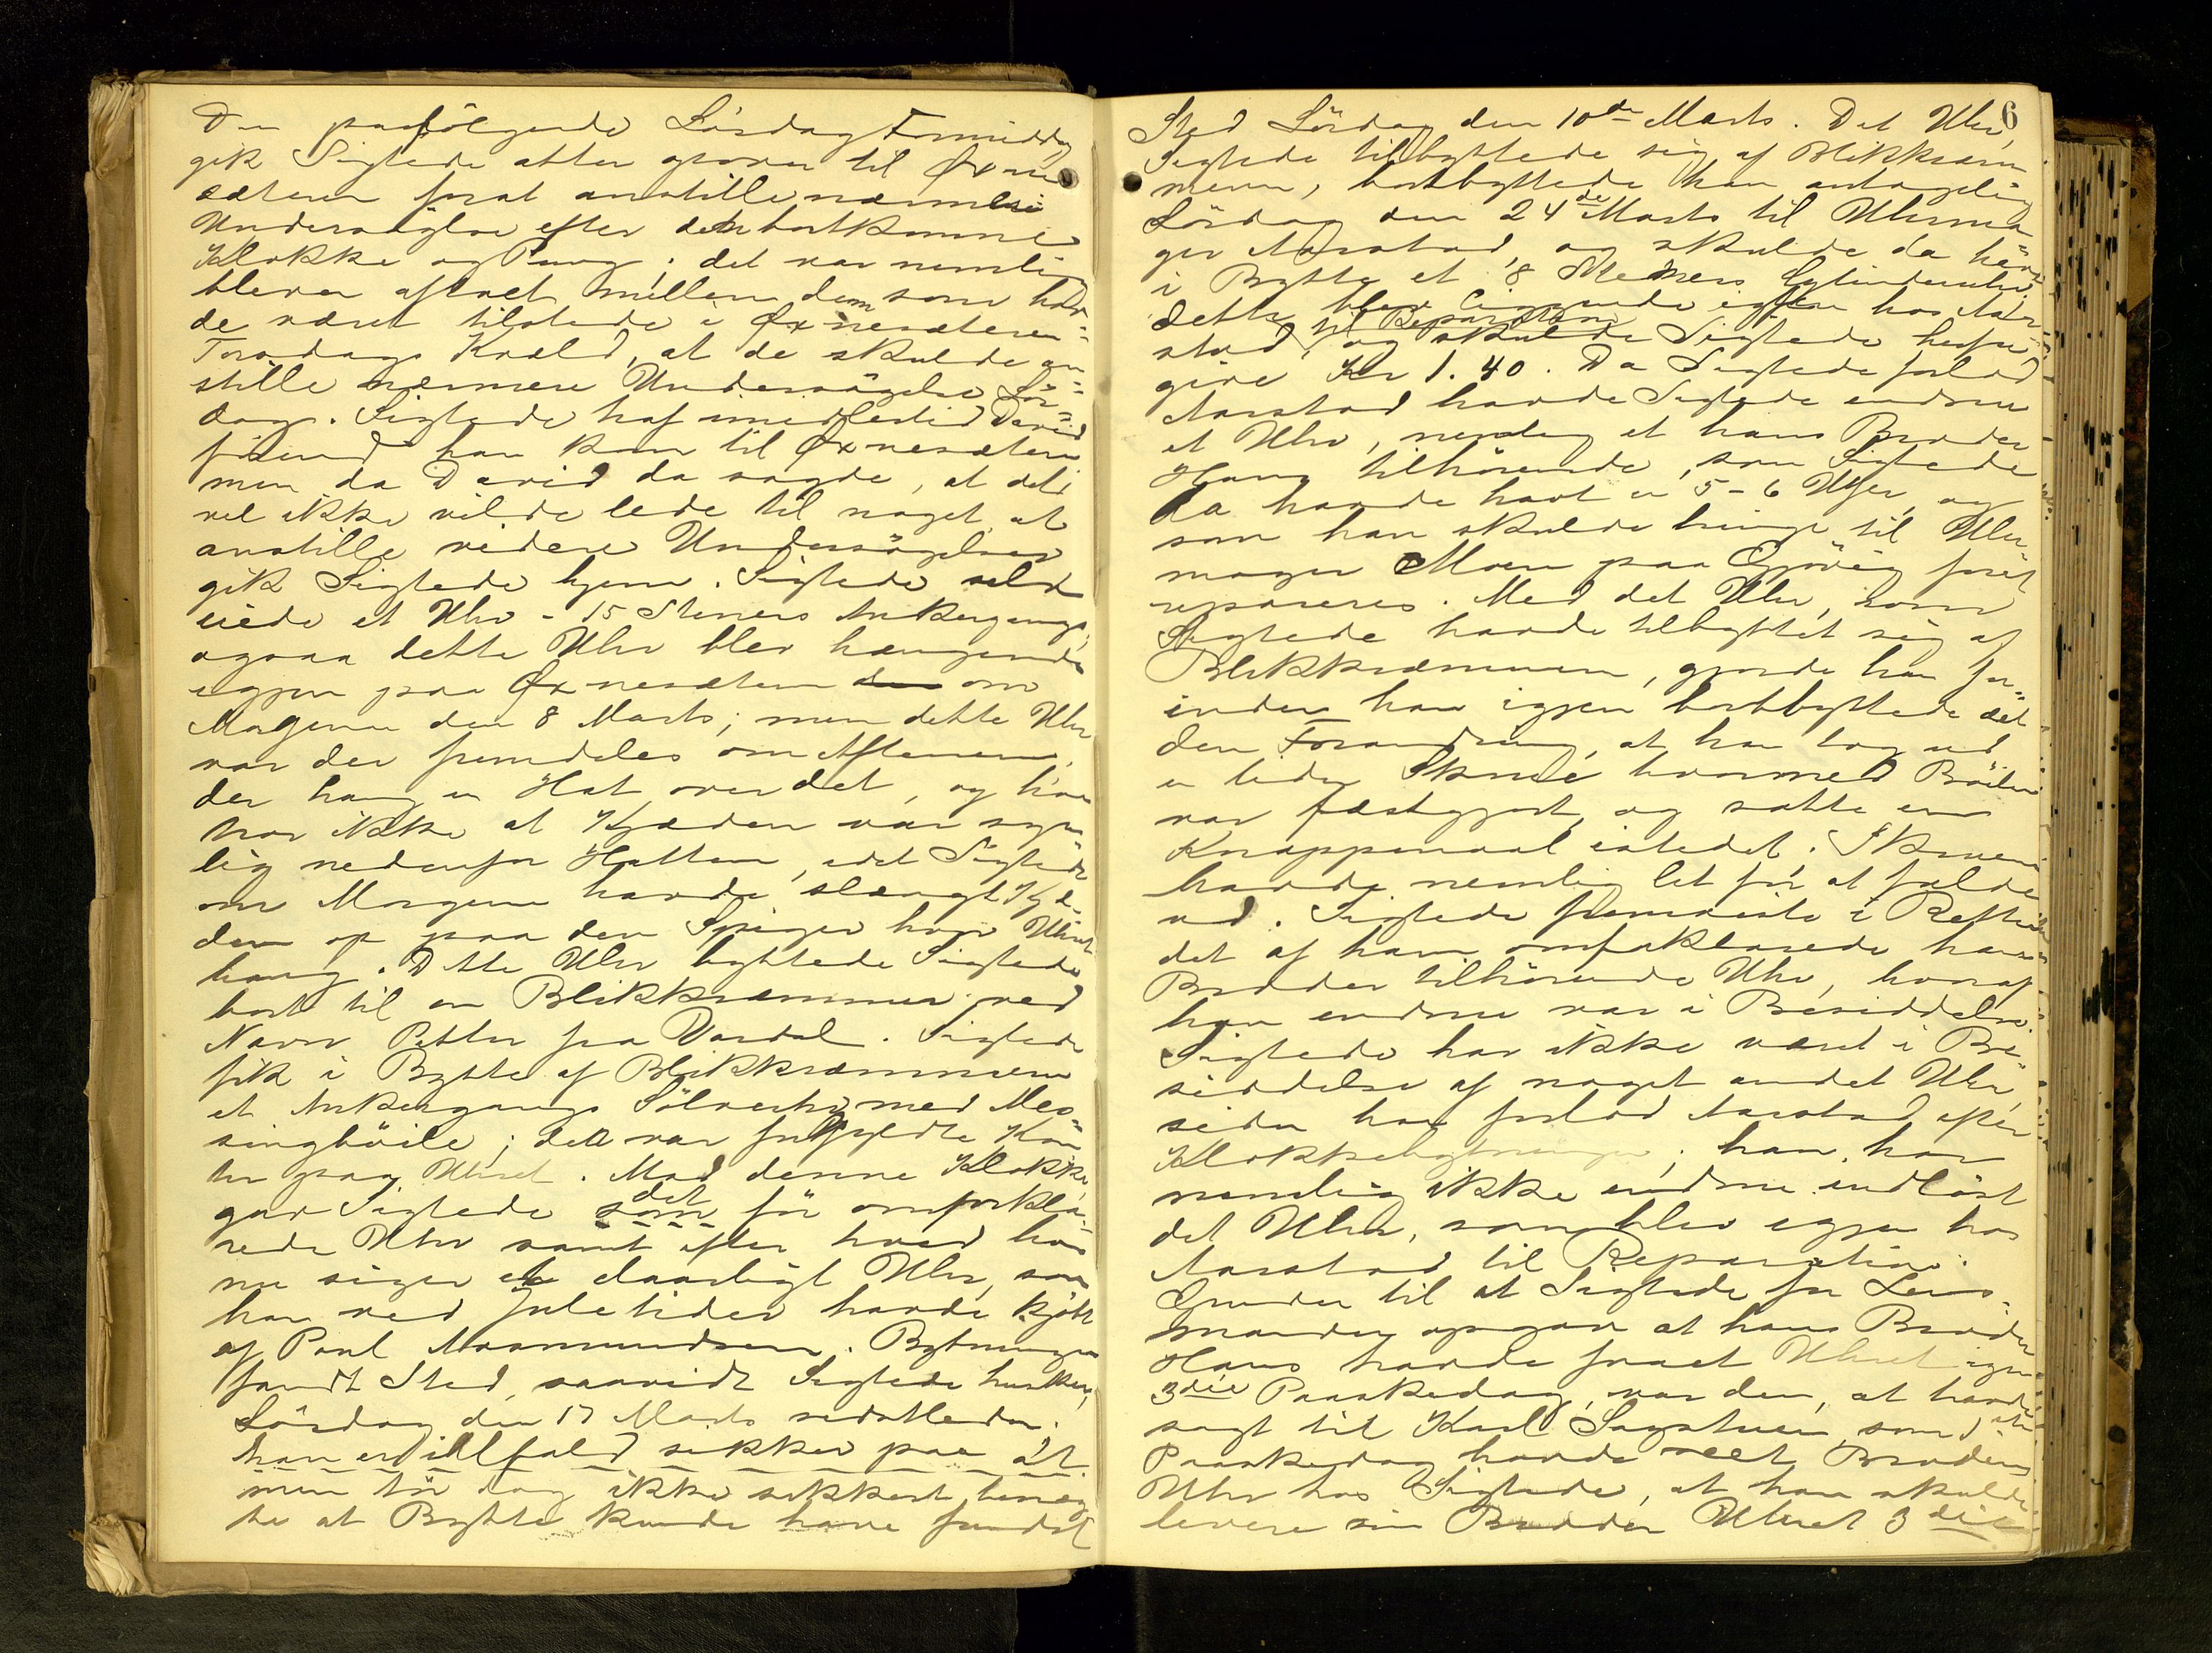 Den paafölgende Lördag Formiddag
gik Sigtede atter opover til Øxne
sæteren forat anstille nærmere
Undersögelse efter den bortkomne
Klokke og Pung; det var nemlig
bleven aftalt mellem dem som hav-
de været tilstede i Øxnesæteren
Torsdags Kveld, at de skulde an-
stille nærmere Undersögelse Lör-
dag. Sigtede traf imidlertid David
förend han kom til Øxnesæteren
men da David da sagde, at det
vel ikke vilde lede til noget at
anstille videre Undersögelser
gik Sigtede hjem. Sigtede selv
eiede et Uhr - 15 Steners Ankergangs,
ogsaa dette Uhr blev hængende
igjen paa Øxnesæteren om
Morgenen den 8 Marts; men dette Uhr
var der fremdeles om Aftenen,
der hang en Hat over det, og han
tror ikke at Kjæden var syn-
lig nedenfor Hatten, idet Sigtede
om Morgenen havde slængt Kjæ-
den op paa den Spiger hvor Uhret
hang. Dette Uhr byttede Sigtede
bort til en Blikkræmmer ved
Navn Petter fra Vardal. Sigtede
fik i Bytte af Blikkræmmeren
et Ankergangs Sölvuhr med Mes-
singböile; det var forgyldte Kan-
ter paa Uhret. Mod denne Klokke
gav Sigtede det för omforkla-
rede Uhr samt efter hvad han
nu siger et daarligt Uhr, som
han ved Juletider havde kjöbt
af Paul Amundsen. Bytningen
fandt Sted, saavidt Sigtede husker,
Lördag den 17 Marts sidstleden.
han er ialfald sikker paa at
men tör dog ikke sikkert benæg-
te at Byttet kunde have fundet
6
Sted Lördag den 10de Marts. Det Uhr,
Sigtede tilbyttede sig af Blikkræm-
meren, bortbyttede han antagelig
Lördag den 24de Marts til Uhrma-
ger Aarstad, og skulde da have
i Bytte et 8 Steners Cylinderuhr,
dette blev liggende igjen hos Aar-
stad til Reparation og skulde Sigtede herfor
give Kr 1.40. Da Sigtede forlod
Aarstad havde Sigtede endnu
et Uhr, nemlig et hans Broder
Hans tilhörende, som Sigtede
da havde havt en 5-6 Uger, og
som han skulde bringe til Uhr-
mager Moen paa Gjövig forat
repareres. Med det Uhr, som
Sigtede havde tilbyttet sig af
Blikkræmmeren, gjorde han for-
inden han igjen bortbyttede det
den Forandring, at han tog ud
en liden Skrue hvormed Böilen
var fæstgjort, og satte en
Knappenaal istedet. Skruen
havde nemlig let for at falde
ud. Sigtede fremviste i Retten
det af ham omforklarede hans
Broder tilhörende Uhr, hvoraf
han endnu var i Besiddelse.
Sigtede har ikke været i Be-
siddelse af noget andet Uhr,
siden han forlod Aarstad efter
Klokkebytningen; han har
nemlig ikke endnu indlöst
det Uhr, som blev igjen hos
Aarstad til Reparation.
Grunden til at Sigtede for Lens-
manden opgav at hans Broder
Hans havde faaet Uhret igjen
3die Paaskedag, var den, at han
sagt til Karl Sagstuen, som
Paaskedag havde seet Broderens
Uhr hos Sigtede, at han skulde
levere sin Broder Uhret 3die